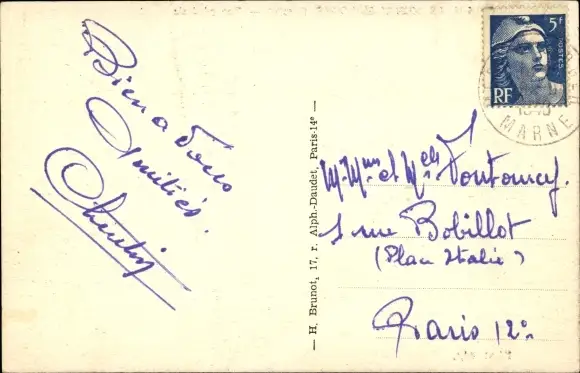 Bien a Vous
Amitiés.
— H. Brunot, 17, r. Alph.-Daudet, Paris-14e —
5f
POSTES
RF
MARNE
M. Mme et Melles
1 rue Bobillot
(Place Italie)
Paris 12e